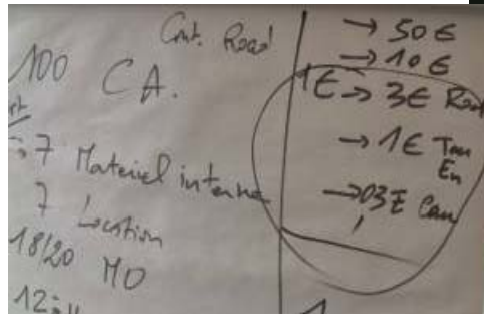 Cnt. Road
100 CA.
7 Materiel interne
7 Location
18/20 MO
→ 50 €
→ 10 €
1€ → 3€
→ 1€
En
→ 03€